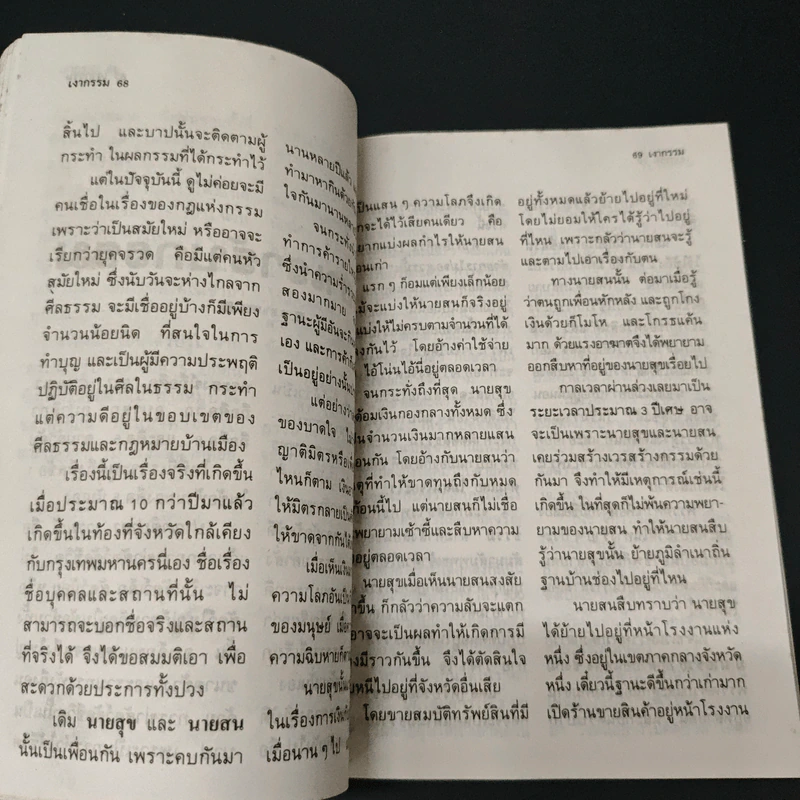 เงากรรม 68
สิ้นไป และบาปนั้นจะติดตามผู้
กระทำ ในผลกรรมที่ได้กระทำไว้
แต่ในปัจจุบันนี้ ดูไม่ค่อยจะมี
คนเชื่อในเรื่องของกฎแห่งกรรม
เพราะว่าเป็นสมัยใหม่ หรืออาจจะ
เรียกว่ายุคจรวด คือมีแต่คนหัว
สมัยใหม่ ซึ่งนับวันจะห่างไกลจาก
ศีลธรรม จะมีเชื่ออยู่บ้างก็มีเพียง
จำนวนน้อยนิด ที่สนใจในการ
ทำบุญ และเป็นผู้มีความประพฤติ
ปฏิบัติอยู่ในศีลในธรรม กระทำ
แต่ความดีอยู่ในขอบเขตของ
ศีลธรรมและกฎหมายบ้านเมือง
เรื่องนี้เป็นเรื่องจริงที่เกิดขึ้น
เมื่อประมาณ 10 กว่าปีมาแล้ว
เกิดขึ้นในท้องที่จังหวัดใกล้เคียง
กับกรุงเทพมหานครนี่เอง ชื่อเรื่อง
ชื่อบุคคลและสถานที่นั้น ไม่
สามารถจะบอกชื่อจริงและสถาน
ที่จริงได้ จึงได้ขอสมมติเอา เพื่อ
สะดวกด้วยประการทั้งปวง
เดิม นายสุข และ นายสน
นั้นเป็นเพื่อนกัน เพราะคบกันมา
นานหลายปีแล้ว
ทำมาหากินด้วย
ใจกันมานาน
จนกระทั่ง
ทำการค้าราย
ซึ่งนำความร่ำรวย
สองมากมาย
ฐานะผู้มีอันจะ
เอง และการค้า
เป็นอยู่อย่างนั้น
แต่อย่างว่า
ของบาดใจ
ญาติมิตรหรือ
ไหนก็ตาม
ให้มิตรกลายเป็น
ให้ขาดจากกัน
เมื่อเห็นเงิน
ความโลภอันเป็น
ของมนุษย์
ความฉิบหายก็
นายสุขนั้น
ในเรื่องการเงิน
เมื่อนาน ๆ ไป
69 เงากรรม
เป็นแสน ๆ ความโลภจึงเกิด
จะได้ไว้เสียคนเดียว คือ
แบ่งผลกำไรให้นายสน
แรก ๆ ก็อมแต่เพียงเล็กน้อย
จะแบ่งให้นายสนก็จริงอยู่
แบ่งให้ไม่ครบตามจำนวนที่ได้
กันไว้ โดยอ้างค่าใช้จ่าย
ไอ้โน่นไอ้นี่อยู่ตลอดเวลา
จนกระทั่งถึงที่สุด นายสุข
อมเงินกองกลางทั้งหมด ซึ่ง
จำนวนเงินมากหลายแสน
กัน โดยอ้างกับนายสนว่า
ที่ทำให้ขาดทุนถึงกับหมด
นี้ไป แต่นายสนก็ไม่เชื่อ
พยายามเซ้าซี้และสืบหาความ
อยู่ตลอดเวลา
นายสุขเมื่อเห็นนายสนสงสัย
ขึ้น ก็กลัวว่าความลับจะแตก
อาจจะเป็นผลทำให้เกิดการมี
ราวกันขึ้น จึงได้ตัดสินใจ
ไปอยู่ที่จังหวัดอื่นเสีย
โดยขายสมบัติทรัพย์สินที่มี
อยู่ทั้งหมดแล้วย้ายไปอยู่ที่ใหม่
โดยไม่ยอมให้ใครได้รู้ว่าไปอยู่
ที่ไหน เพราะกลัวว่านายสนจะรู้
และตามไปเอาเรื่องกับตน
ทางนายสนนั้น ต่อมาเมื่อรู้
ว่าตนถูกเพื่อนหักหลัง และถูกโกง
เงินด้วยก็โมโห และโกรธแค้น
มาก ด้วยแรงอาฆาตจึงได้พยายาม
ออกสืบหาที่อยู่ของนายสุขเรื่อยไป
กาลเวลาผ่านล่วงเลยมาเป็น
ระยะเวลาประมาณ 3 ปีเศษ อาจ
จะเป็นเพราะนายสุขและนายสน
เคยร่วมสร้างเวรสร้างกรรมด้วย
กันมา จึงทำให้มีเหตุการณ์เช่นนี้
เกิดขึ้น ในที่สุดก็ไม่พ้นความพยา-
ยามของนายสน ทำให้นายสนสืบ
รู้ว่านายสุขนั้น ย้ายภูมิลำเนาถิ่น
ฐานบ้านช่องไปอยู่ที่ไหน
นายสนสืบทราบว่า นายสุข
ได้ย้ายไปอยู่ที่หน้าโรงงานแห่ง
หนึ่ง ซึ่งอยู่ในเขตภาคกลางจังหวัด
หนึ่ง เดี๋ยวนี้ฐานะดีขึ้นกว่าเก่ามาก
เปิดร้านขายสินค้าอยู่หน้าโรงงาน